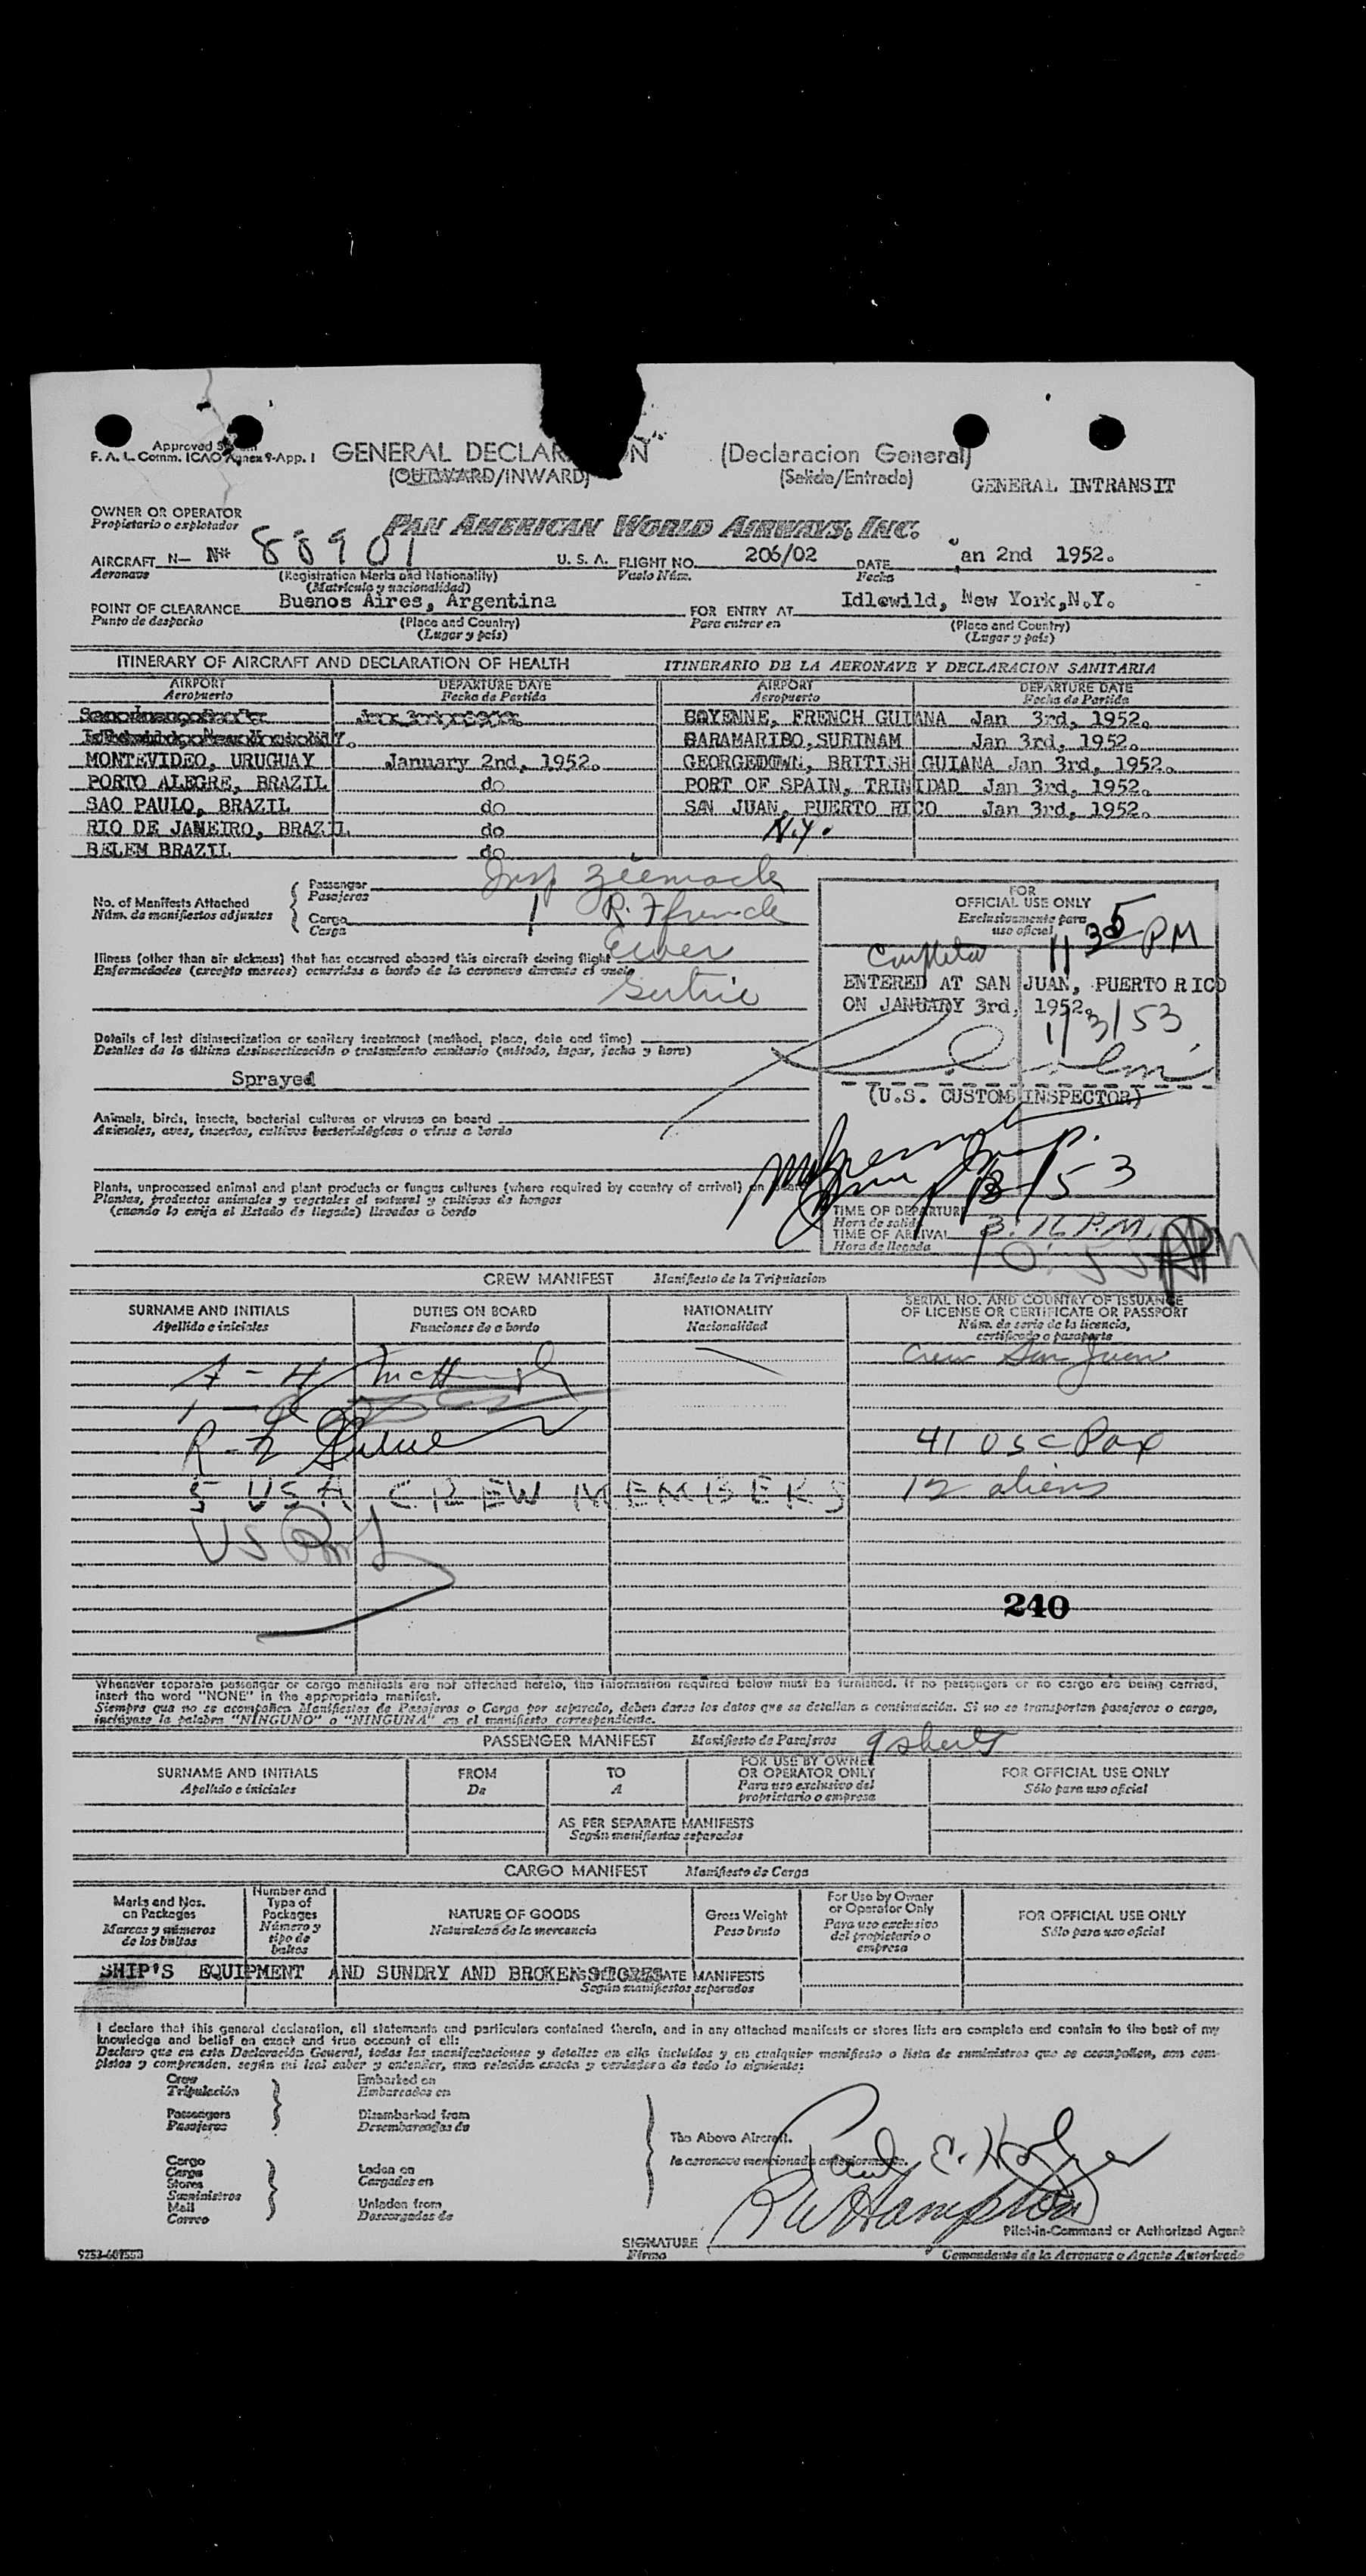 Approved
F. A. L. Comm. ICAO Annex 9-App. I
GENERAL DECLAR N (Declaracion General)
(OUTWARD/INWARD) (Salida/Entrada)
GENERAL INTRANSIT
OWNER OR OPERATOR
Propietario o explotador
PAN AMERICAN WORLD AIRWAYS, INC.
AIRCRAFT N- N* 88901 U. S. A. FLIGHT NO. 206/02 DATE an 2nd 1952.
Aeronave (Registration Marks and Nationality) Vuelo Núm. Fecha
(Matricula y nacionalidad)
POINT OF CLEARANCE Buenos Aires, Argentina FOR ENTRY AT Idlewild, New York,N.Y.
Punto de despacho (Place and Country) Para entrar en (Place and Country)
(Lugar y país) (Lugar y país)
ITINERARY OF AIRCRAFT AND DECLARATION OF HEALTH ITINERARIO DE LA AERONAVE Y DECLARACION SANITARIA
AIRPORT DEPARTURE DATE AIRPORT DEPARTURE DATE
Aeropuerto Fecha de Partida Aeropuerto Fecha de Partida
CAYENNE, FRENCH GUIANA Jan 3rd, 1952.
PARAMARIBO,SURINAM Jan 3rd, 1952.
MONTEVIDEO, URUGUAY January 2nd, 1952. GEORGETOWN, BRITISH GUIANA Jan 3rd, 1952.
PORTO ALEGRE, BRAZIL do PORT OF SPAIN, TRINIDAD Jan 3rd, 1952.
SAO PAULO, BRAZIL do SAN JUAN, PUERTO RICO Jan 3rd, 1952.
RIO DE JANEIRO, BRAZIL do N.Y.
BELEM BRAZIL do
No. of Manifests Attached
Núm. de manifiestos adjuntos
Passenger
Pasajeros
Cargo 1
Carga
Illness (other than air sickness) that has occurred aboard this aircraft during flight
Enfermedades (excepto mareos) ocurridas a bordo de la aeronave durante el vuelo
Details of last disinsectization or sanitary treatment (method, place, date and time)
Detalles de la última desinsectización o tratamiento sanitario (método, lugar, fecha y hora)
Sprayed
Animals, birds, insects, bacterial cultures or viruses on board
Animales, aves, insectos, cultivos bacteriológicos o virus a bordo
Plants, unprocessed animal and plant products or fungus cultures (where required by country of arrival) on board
Plantas, productos animales y vegetales al natural y cultivos de hongos
(cuando lo exija el Estado de llegada) llevados a bordo
FOR
OFFICIAL USE ONLY
Exclusivamente para
uso oficial
PM
ENTERED AT SAN JUAN, PUERTO RICO
ON JANUARY 3rd, 1952.
1/3/53
(U.S. CUSTOMS INSPECTOR)
TIME OF DEPARTURE
Hora de salida
TIME OF ARRIVAL
Hora de llegada
CREW MANIFEST Manifiesto de la Tripulacion
SURNAME AND INITIALS DUTIES ON BOARD NATIONALITY SERIAL NO. AND COUNTRY OF ISSUANCE
OF LICENSE OR CERTIFICATE OR PASSPORT
Apellido e iniciales Funciones de a bordo Nacionalidad Núm. de serie de la licencia,
certificado o pasaporte
Crew San Juan
41 USC Pax
5 USA CREW MEMBERS 12 aliens
240
Whenever separate passenger or cargo manifests are not attached hereto, the information required below must be furnished. If no passengers or no cargo are being carried,
insert the word "NONE" in the appropriate manifest.
Siempre que no se acompañen Manifiestos de Pasajeros o Carga por separado, deben darse los datos que se detallan a continuación. Si no se transportan pasajeros o carga,
inclúyase la palabra "NINGUNO" o "NINGUNA" en el manifiesto correspondiente.
PASSENGER MANIFEST Manifiesto de Pasajeros 9 sheets
SURNAME AND INITIALS FROM TO FOR USE BY OWNER
OR OPERATOR ONLY FOR OFFICIAL USE ONLY
Apellido e iniciales De A Para uso exclusivo del
proprietario o empresa Sólo para uso oficial
AS PER SEPARATE MANIFESTS
Según manifiestos separados
CARGO MANIFEST Manifiesto de Carga
Marks and Nos.
on Packages
Marcas y números
de los bultos
Number and
Type of
Packages
Número y
tipo de
bultos
NATURE OF GOODS
Naturaleza de la mercancia
Gross Weight
Peso bruto
For Use by Owner
or Operator Only
Para uso exclusivo
del propietario o
empresa
FOR OFFICIAL USE ONLY
Sólo para uso oficial
SHIP'S EQUIPMENT AND SUNDRY AND BROKEN STORES MANIFESTS
Según manifiestos separados
I declare that this general declaration, all statements and particulars contained therein, and in any attached manifests or stores lists are complete and contain to the best of my
knowledge and belief an exact and true account of all:
Declaro que en esta Declaración General, todas las manifestaciones y detalles en ella incluidos y en cualquier manifiesto o lista de suministros que se acompañen, son com-
pletos y comprenden, según mi leal saber y entender, una relación exacta y verdadera de todo lo siguiente:
Crew Embarked on
Tripulación Embarcados en
Passengers Disembarked from
Pasajeros Desembarcados de
The Above Aircraft.
la aeronave mencionada anteriormente.
Cargo Laden on
Carga Cargados en
Stores
Suministros
Mail Unladen from
Correo Descargados de
Paul E. Holzer
R W Hampton
Pilot-in-Command or Authorized Agent
SIGNATURE
Firma Comandante de la Aeronave o Agente Autorizado